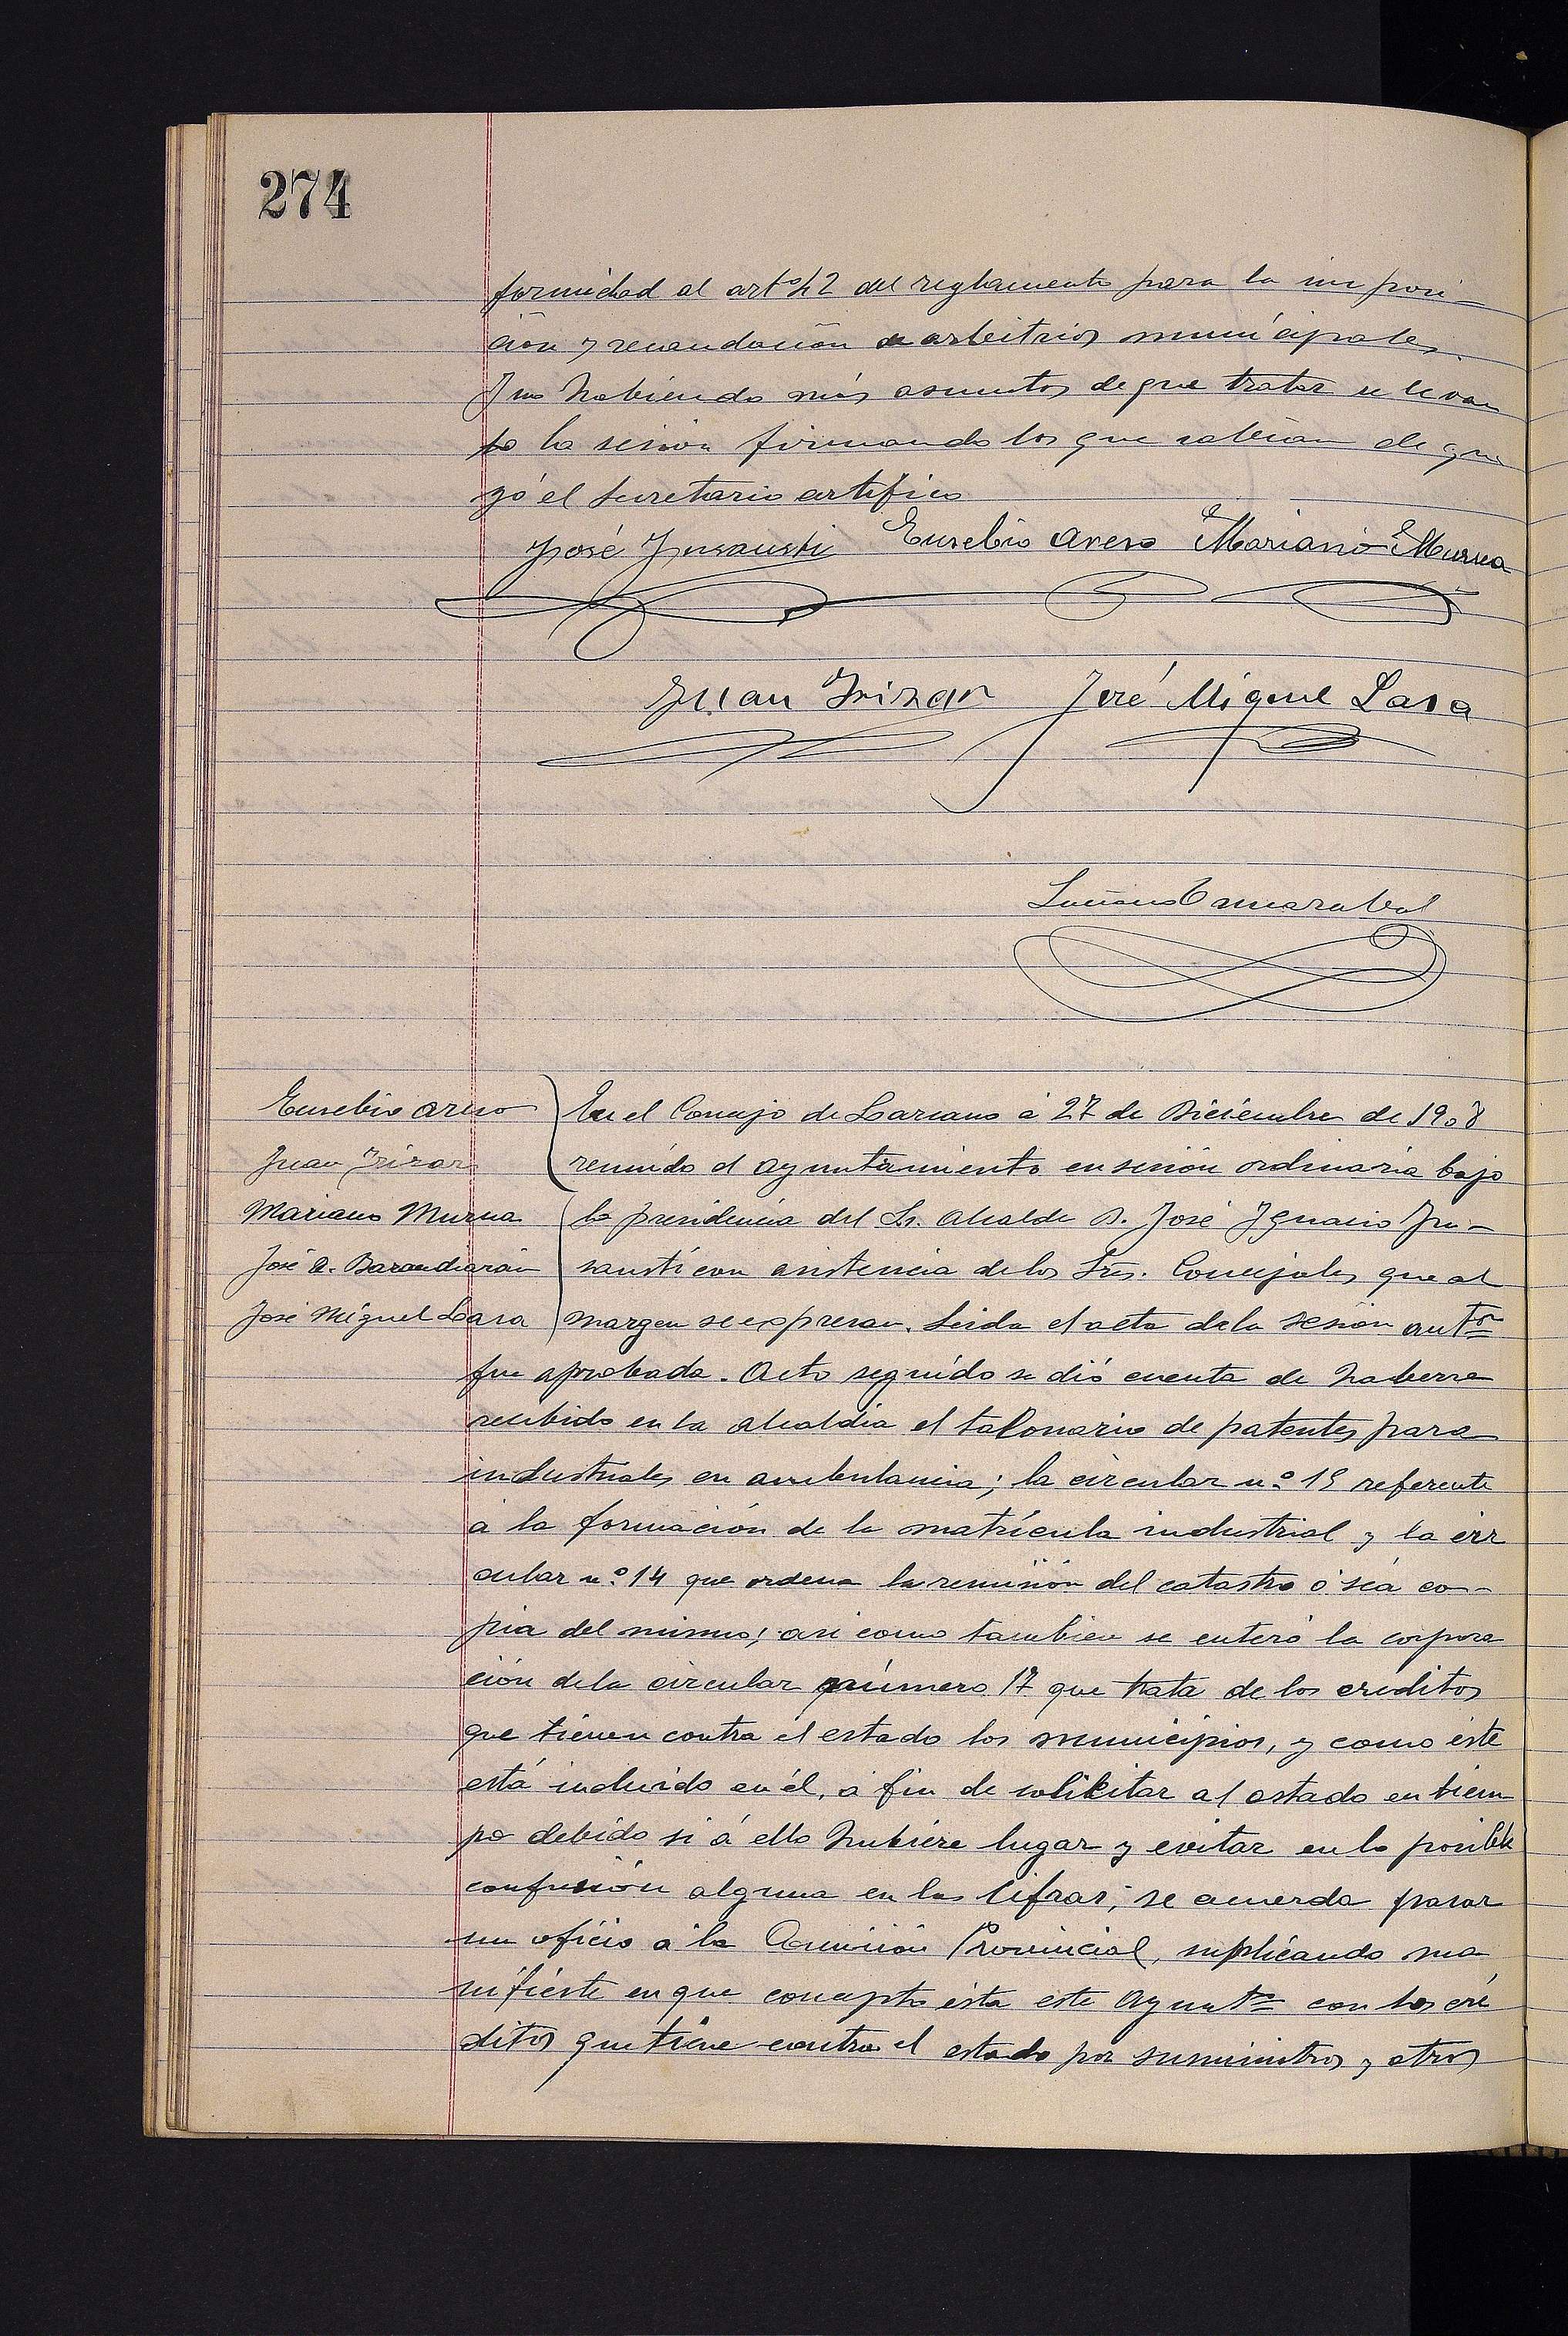 274
formidad al artº 42 del reglamento para la imposi-
ción y recaudación de arbitrios municipales.
Y no habiendo más asuntos de que tratar se levan
to la sesion firmando los que sabian de que
yó el secretario certifico
José Ynsausti Eusebio Areso Mariano Murua
Juan Irizar José Miguel Lasa
Luciano
Eusebio Areso
Juan Irizar
Mariano Murua
José A. Barandiarán
José Miguel Lasa
En el Concejo de Larcano á 27 de Diciembre de 1908
reunido el ayuntamiento en sesión ordinaria bajo
la presidencia del Sr. Alcalde D. José Ygnacio Yn-
sausti con asistencia de los Sres. Concejales que al
margen se expresan. Leida el acta de la sesión antor
fue aprobada. Acto seguido se dió cuenta de haberse
recibido en la alcaldia el talonario de patentes para
industriales en ambulancia; la circular n.º 15 referente
á la formación de la matrícula industrial y la cir
cular n.º 14 que ordena la remisión del catastro ó sea co-
pia del mismo; asi como tambien se enteró la corpora
ción de la circular número 17 que trata de los créditos
que tienen contra el estado los municipios, y como éste
está incluido en él, á fin de solicitar al estado en tiem
po debido si á ello hubiere lugar y evitar en lo posible
confusión alguna en las cifras; se acuerda pasar
un oficio á la Comisión Provincial, suplicando ma
nifieste en que concepto ésta este Ayuntº con los cré
ditos que tiene contra el estado por suministros y otros